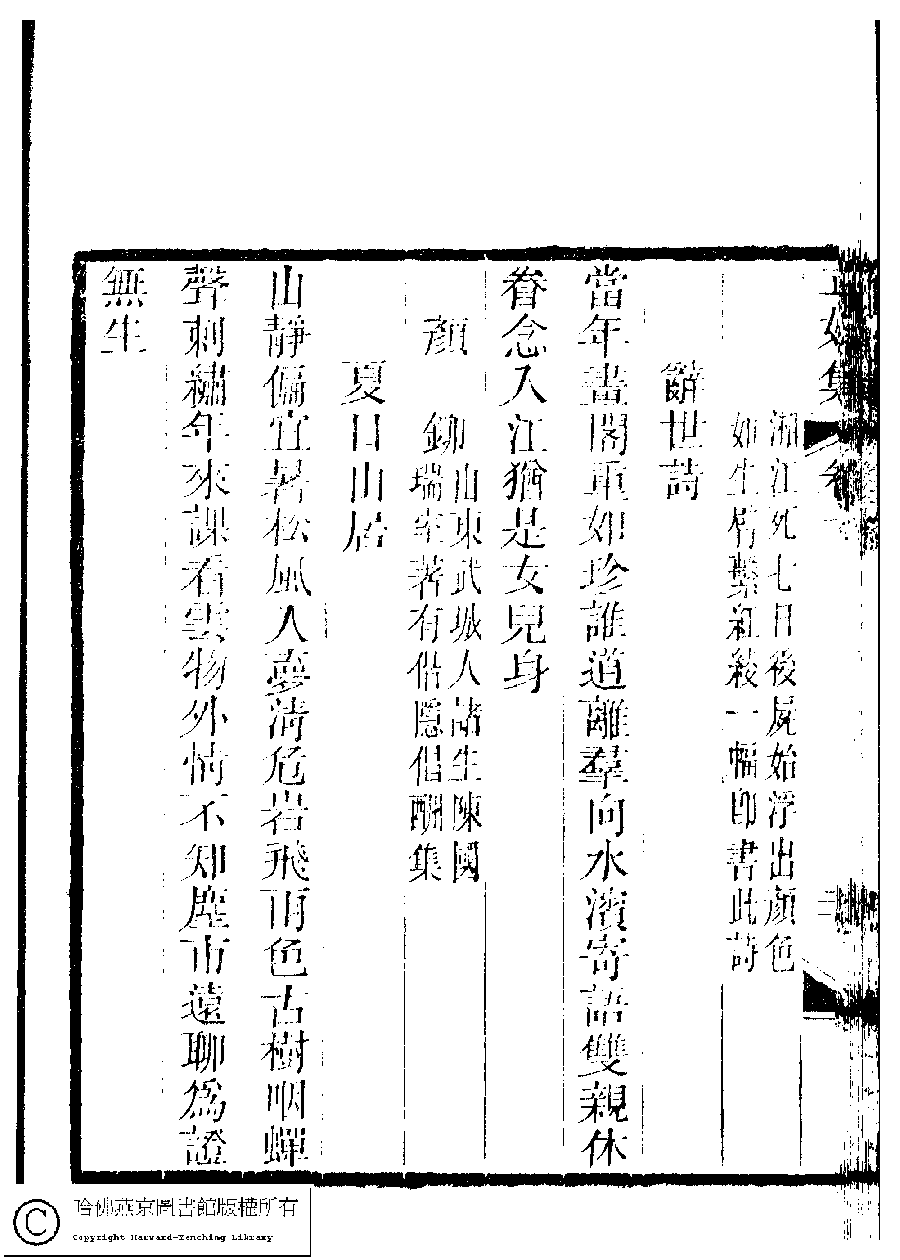 正始集 卷
湘江死七日後屍始浮出顏色
如生臂繫紅綾一幅即書此詩
辭世詩
當年畫閣重如珍誰道離羣向水濱寄語雙親休
眷念入江猶是女兒身
顏 鉚
山東武城人諸生陳國
瑞室著有偕隱倡酬集
夏日山居
山靜偏宜暑松風入夢清危岩飛雨色古樹咽蟬
聲刺繡年來課看雲物外情不知塵市遠聊爲證
無生
哈佛燕京圖書館版權所有
Copyright Harvard-Yenching Library